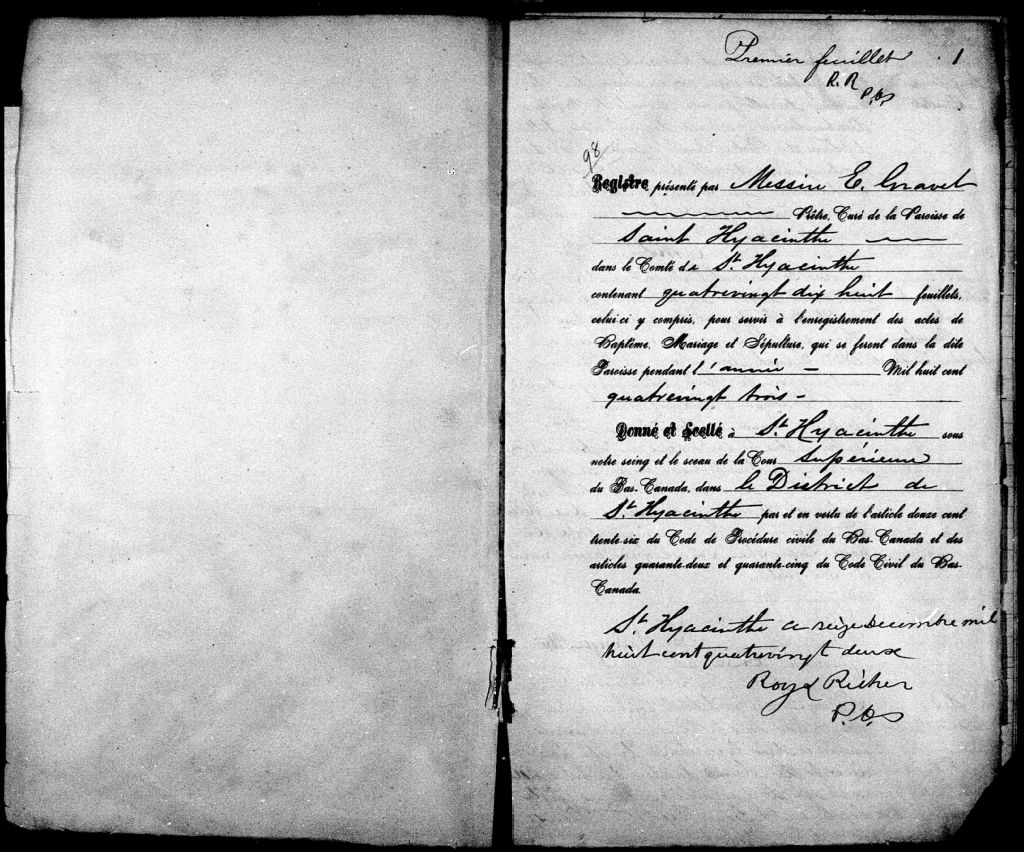 Premier feuillet 1
R. R
P.C.S
98
Registre présenté par Messire E. Gravel
Prêtre, Curé de la Paroisse de
Saint Hyacinthe
dans le Comté de St. Hyacinthe
contenant quatrevingt dix huit feuillets,
celui-ci y compris, pour servir à l'enregistrement des actes de
Baptême, Mariage et Sépulture, qui se feront dans la dite
Paroisse pendant l'année — Mil huit cent
quatrevingt trois -
Donné et Scellé à St. Hyacinthe sous
notre seing et le sceau de la Cour Supérieure
du Bas-Canada, dans le District de
St. Hyacinthe par et en vertu de l'article douze cent
trente-six du Code de Procédure civile du Bas-Canada et des
articles quarante-deux et quarante-cinq du Code Civil du Bas-
Canada.
St. Hyacinthe ce seize Decembre mil
huit cent quatrevingt deux
Roy & Richer
P.C.S